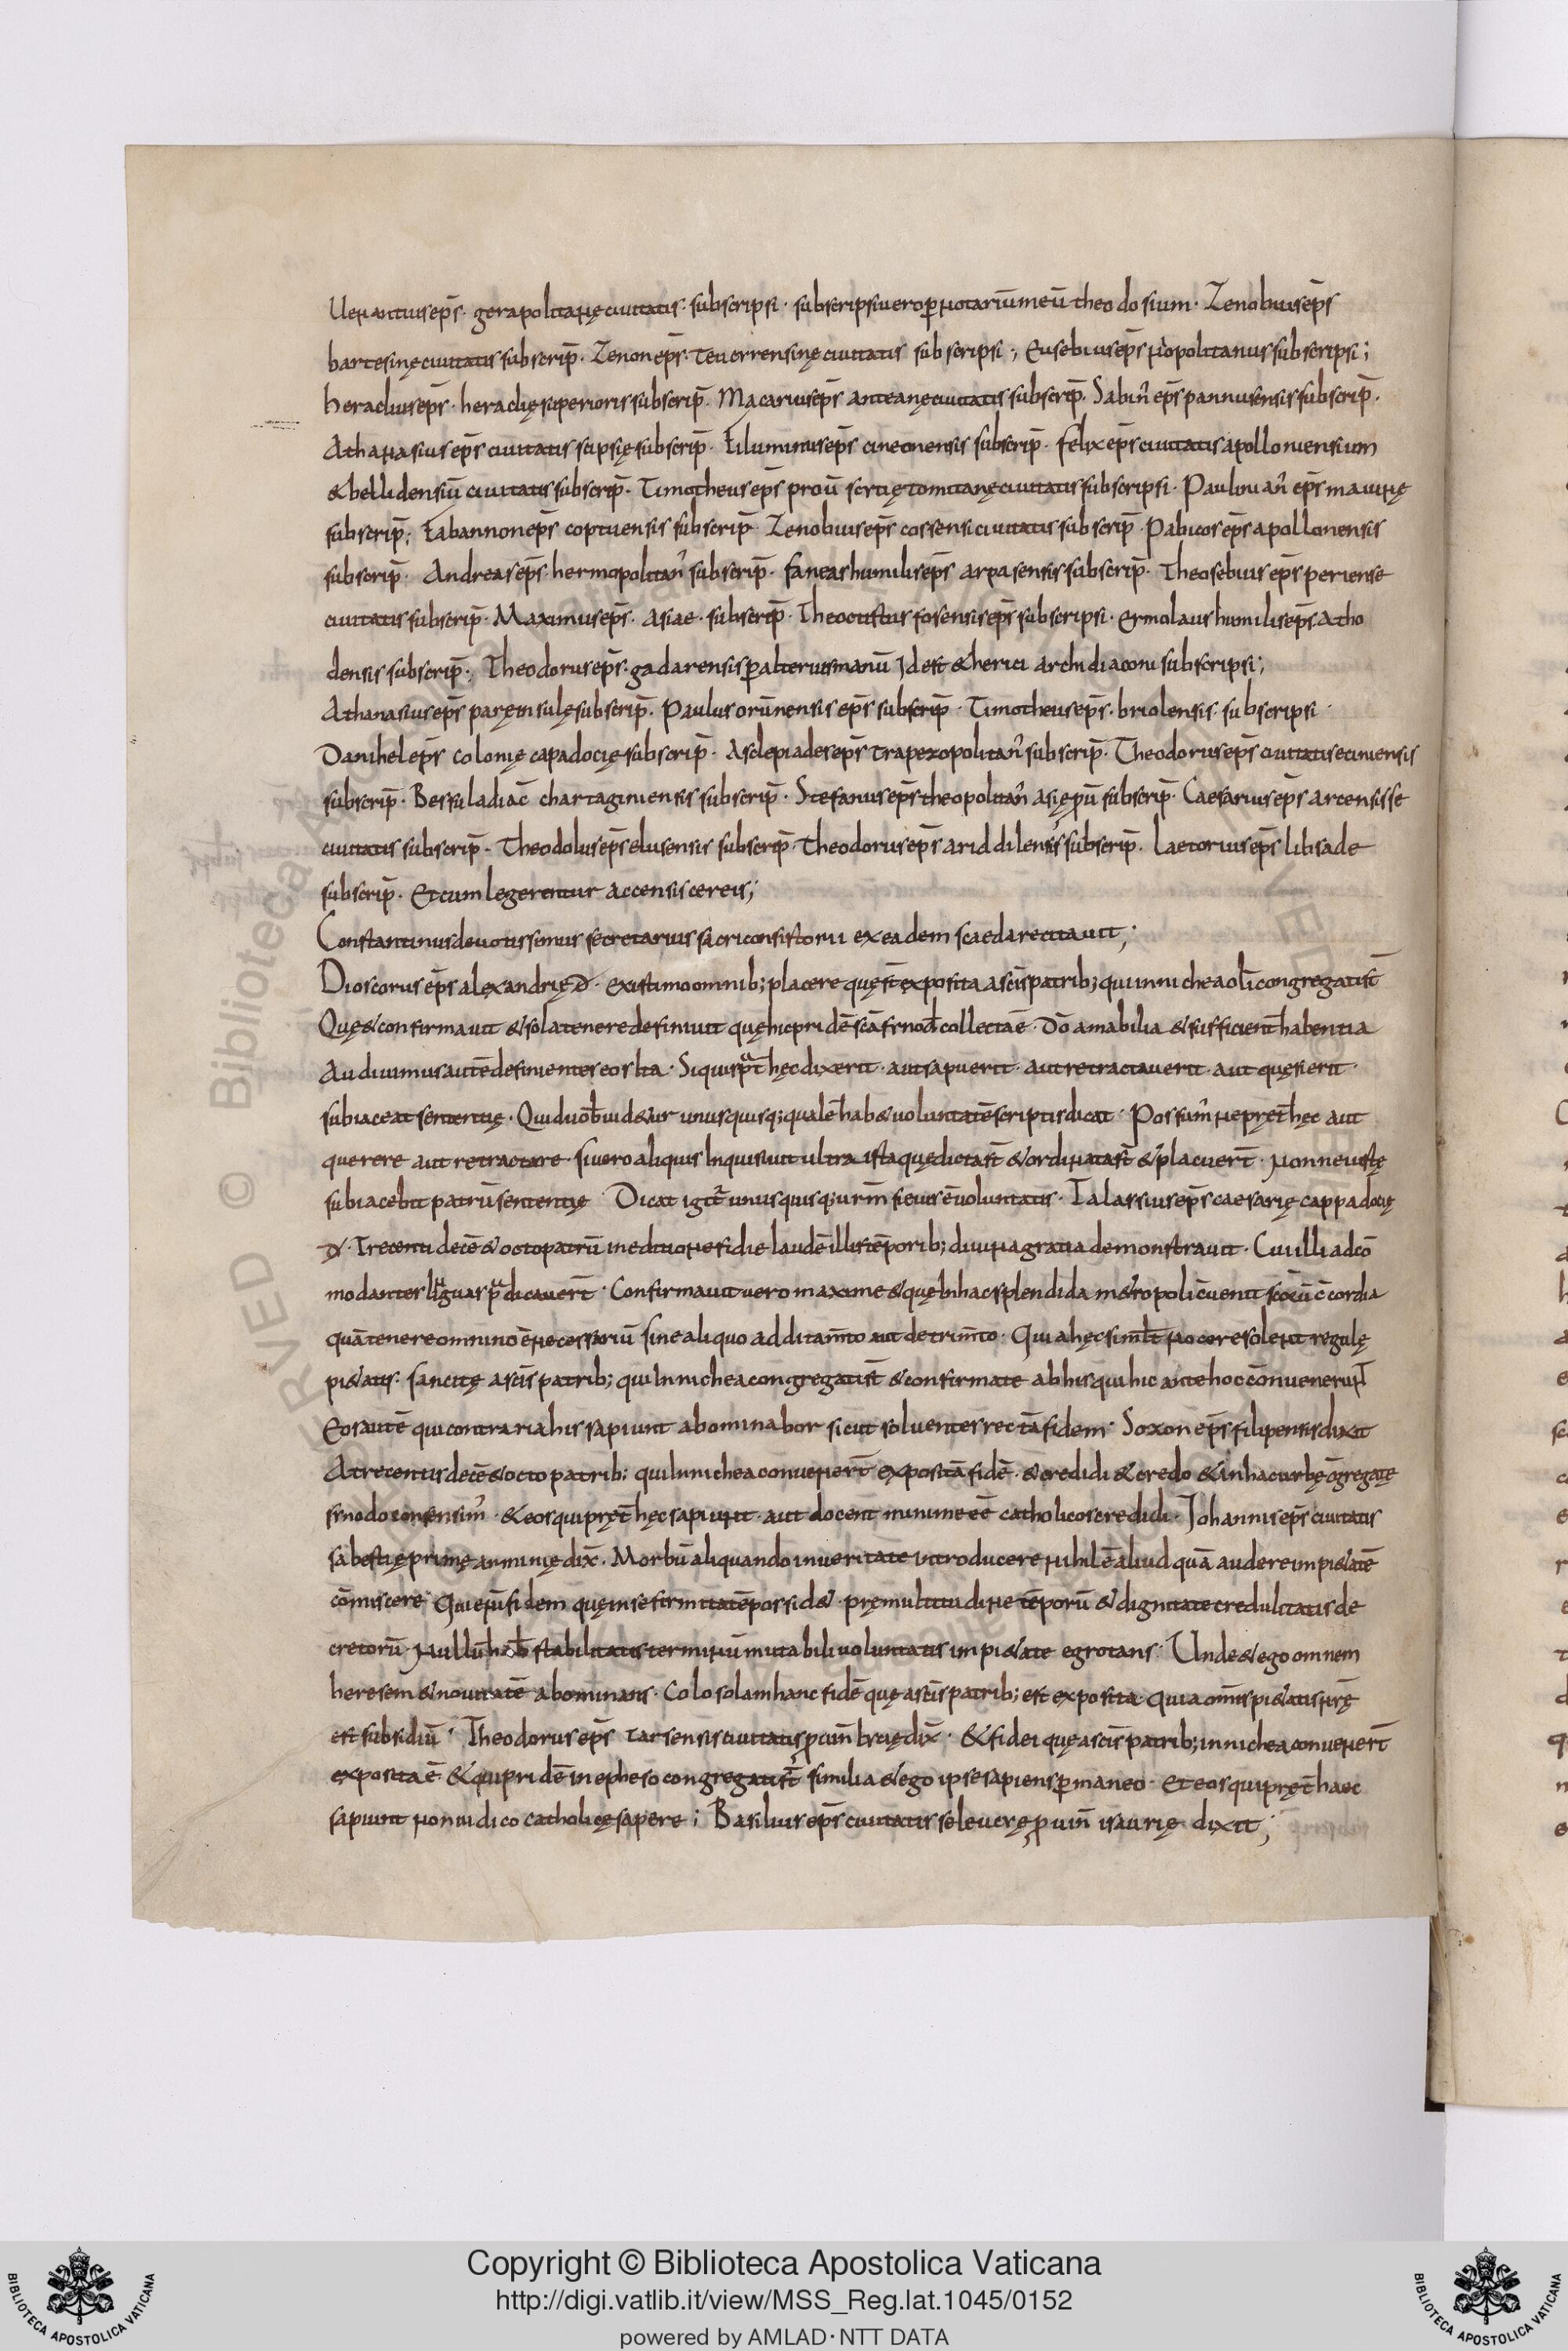 Uenantius ep̄s · gerapolitanę ciuitatis · subscripsi · subscripsi uero ꝑ notariū meū theodosium · Zenobius ep̄s
bartesinę ciuitatis subscrip̄ · Zenon ep̄s · teuerrensinę ciuitatis subscripsi ; Eusebius ep̄s nopolitanus subscripsi ;
heraclius ep̄s · heraclię superioris subscrip̄ · Macarius ep̄s anteanę ciuitatis subscrip̄ · Sabin̄ ep̄s pannusensis subscrip̄ ·
Athanasius ep̄s ciuitatis scipsię subscrip̄ · Filuminus ep̄s cineonensis subscrip̄ · felix ep̄s ciuitatis apolloniensium
& bellidensiū ciuitatis subscrip̄ · Timotheus ep̄s prou̅ scrtię tomitanę ciuitatis subscripsi · Paulini an̄ ep̄s maiunę
subscrip̄ ; Fabannon ep̄s coptuensis subscrip̄ · Zenobius ep̄s cossensi ciuitatis subscrip̄ · Pabicos ep̄s apollonensis
subscrip̄ · Andreas ep̄s · hermopolitan̄ subscrip̄ · faneas humilis ep̄s arpasensis subscrip̄ · Theosebius ep̄s periense
ciuitatis subscrip̄ · Maximus ep̄s · asiae · subscrip̄ · Theoctistus fosensis ep̄s subscripsi · ermolaus humilis ep̄s atho
densis subscrip̄ ; Theodorus ep̄s · gadarensis ꝑ alterius manū id est & herici archidiaconi subscripsi ;
Athanasius ep̄s paręinsulę subscrip̄ · Paulus orūnensis ep̄s subscrip̄ · Timotheus ep̄s · briolensis · subscripsi ·
Danihel ep̄s colonię capadocię subscrip̄ · Asclepiades ep̄s trapezopolitan̄ subscrip̄ · Theodorus ep̄s ciuitatis eciniensis
subscrip̄ · Bessula diac̄ chartaginiensis subscrip̄ · Stefanus ep̄s theopolitan̄ asię ꝓū subscrip̄ · Caesarius ep̄s arcensisse
ciuitatis subscrip̄ · Theodolus ep̄s elusensis subscrip̄ · Theodorus ep̄s ariddilensis subscrip̄ · laetorius ep̄s libsade
subscrip̄ · Et cum legerentur accensis cereis ;
Constantinus deuotissimus secretarius sacri consistorii ex eadem scaeda recitauit ;
Dioscorus ep̄s alexandrię đ · existimo omnib; placere quę s̄t exposita a sc̄is patrib; qui in nichea oli̅ congregati s̄t
Quę & confirmauit & sola tenere definiuit quę hic pridē sc̄a sinod̄ collecta ē · dō amabilia & sufficient̄ habentia
Audiuimus autē definientes eos ita · Siquis p̄t hęc dixerit · aut sapuerit · aut retractauerit · aut quęsierit ·
subiaceat sententię · Quid uob̄ uid&ur unusquisq; qualē hab& uoluntatē scriptis dicat · Possum̄ ne pręt̄ hęc aut
querere aut retractare · si uero aliquis inquisiuit ultra ista quę dicta s̄t & ordinata s̄t & placuer̄t · non ne iustę
subiacebit patrū sententię Dicat igit̄ unusquisq; ur̄m si eius ē uoluntatis · Talassius ep̄s caesarię cappadocię
đ · Trecenti decē & octo patrū in editione fidie laudē illis tēporib; diuina gratia demonstrauit · Cui illi adcō
modantes linguas p̄dicauer̄t · Confirmauit uero maxime & quę in hac splendida m&ropoli c̄uenit sc̄orū c̄cordia
quā tenere omnino ē necessariū sine aliquo additam̄to aut detrim̄to · Quia hęc simil̄t nocere solent regulę
pi&atis · sancitę a sc̄is patrib; qui in nichea congregati s̄t & confirmate ab his qui hic ante hoc cōuenerunt
Eos autē qui contraria his sapiunt abominabor sicut soluentes rectā fidem · Soxon ep̄s filipensis dixit
A trecentis decē & octo patrib; qui in nichea conuener̄t expositā fidē · & credidi & credo & in hac urbę ōgregatę
sinodo consensim̄ · & eos qui pręt̄ hęc sapiunt · aut docent minime eē catholicos credidi · Johannis ep̄s ciuitatis
sabestię primę arminię dix̄ · Morbū aliquando in ueritate introducere nihil ē aliud quā audere impi&atē
cōmiscere · Qui enī fidem quę in se firmitatē possid& · prę multitudine tēporū & dignitate credulitatis de
cretorū nullū hab& stabilitatis terminū mutabili uoluntatis impi&ate egrotans · Unde & ego omnem
heresem & nouitatē abominans · Colo solam hanc fidē quę a sc̄is patrib; est exposita Quia om̄is pi&atis nr̄ę
est subsidiū · Theodorus ep̄s tarsensis ciuitatis ꝓuin̄ licię dix̄ · & fidei quę a sc̄is patrib; in nichea conuener̄t
exposita ē · & qui pridē in epheso congregati s̄t similia & ego ipse sapiens ꝑmaneo · Et eos qui pręt̄ haec
sapiunt non iudico catholicę sapere ; Basilius ep̄s ciuitatis seleucrę ꝓuin̄ isaurię dixit ;
Copyright © Biblioteca Apostolica Vaticana
http://digi.vatlib.it/view/MSS_Reg.lat.1045/0152
powered by AMLAD · NTT DATA
BIBLIOTECA APOSTOLICA VATICANA
BIBLIOTECA APOSTOLICA VATICANA